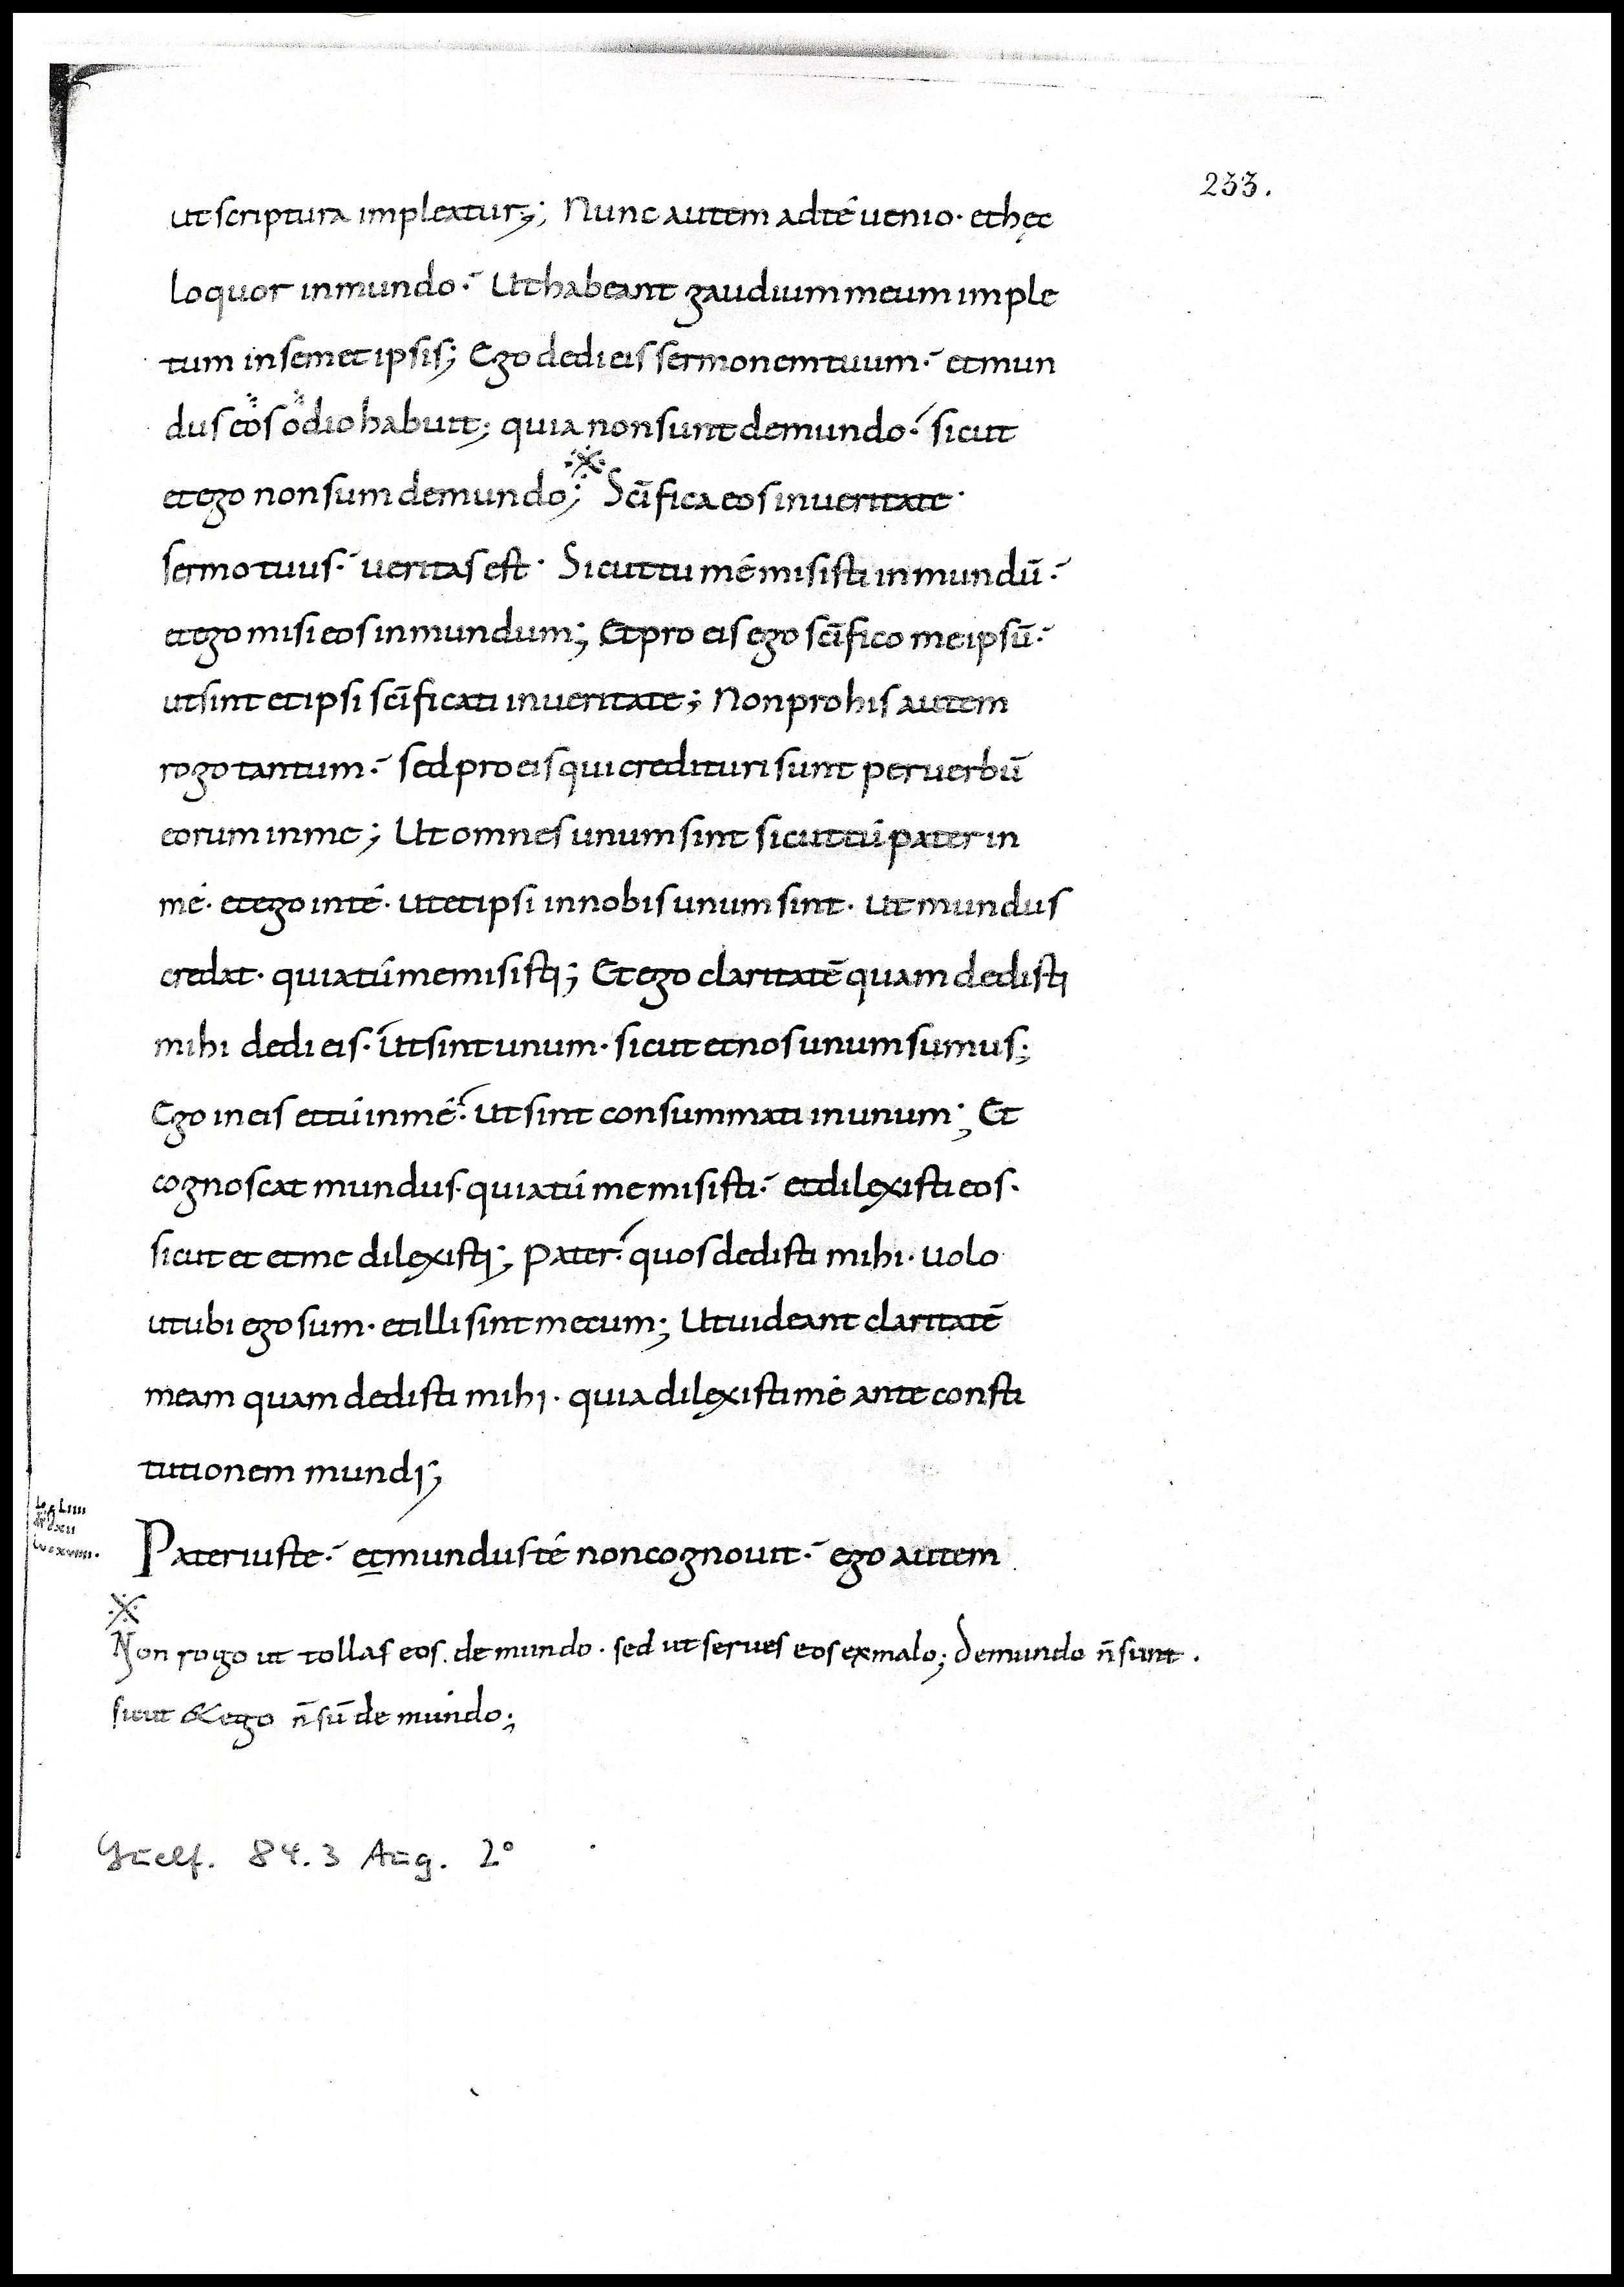 233.
ut scriptura impleatur; Nunc autem ad té uenio· et hęc
loquor in mundo· Ut habeant gaudium meum imple
tum in semet ipsis; Ego dedi eis sermonem tuum· et mun
dus eos odio habuit; quia non sunt de mundo· sicut
et ego non sum de mundo; ※ Sc̄ifica eos in ueritate·
sermo tuus· ueritas est· Sicut tu mé misisti in mundū·
et ego misi eos in mundum; Et pro eis ego sc̄ifico me ipsū·
ut sint et ipsi sc̄ificati in ueritate; Non pro his autem
rogo tantum· sed pro eis qui credituri sunt per uerbū
eorum in me; Ut omnes unum sint sicut tú pater in
mé· et ego in té· ut et ipsi in nobis unum sint· ut mundus
credat· quia tú me misisti; Et ego claritatē quam dedisti
mihi dedi eis· Ut sint unum· sicut et nos unum sumus;
Ego in eis et tú in mé· ut sint consummati in unum; Et
cognoscat mundus· quia tú me misisti· et dilexisti eos·
sicut et et me dilexisti; Pater· quos dedisti mihi· uolo
ut ubi ego sum· et illi sint mecum; Ut uideant claritatē
meam quam dedisti mihi· quia dilexisti mé ante consti
tutionem mundi;
Pater iuste· et mundus té non cognouit· ego autem
※
Non rogo ut tollas eos de mundo· sed ut serues eos ex malo; de mundo n̄ sunt·
sicut & ego n̄ sū de mundo;
Guelf. 84.3 Aug. 2°